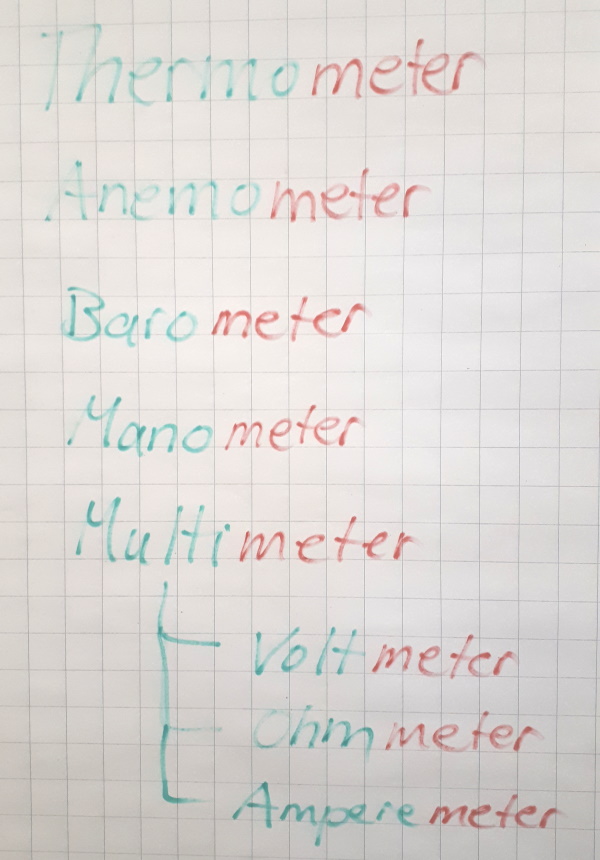 Thermometer
Anemometer
Barometer
Manometer
Multimeter
Voltmeter
Ohmmeter
Amperemeter